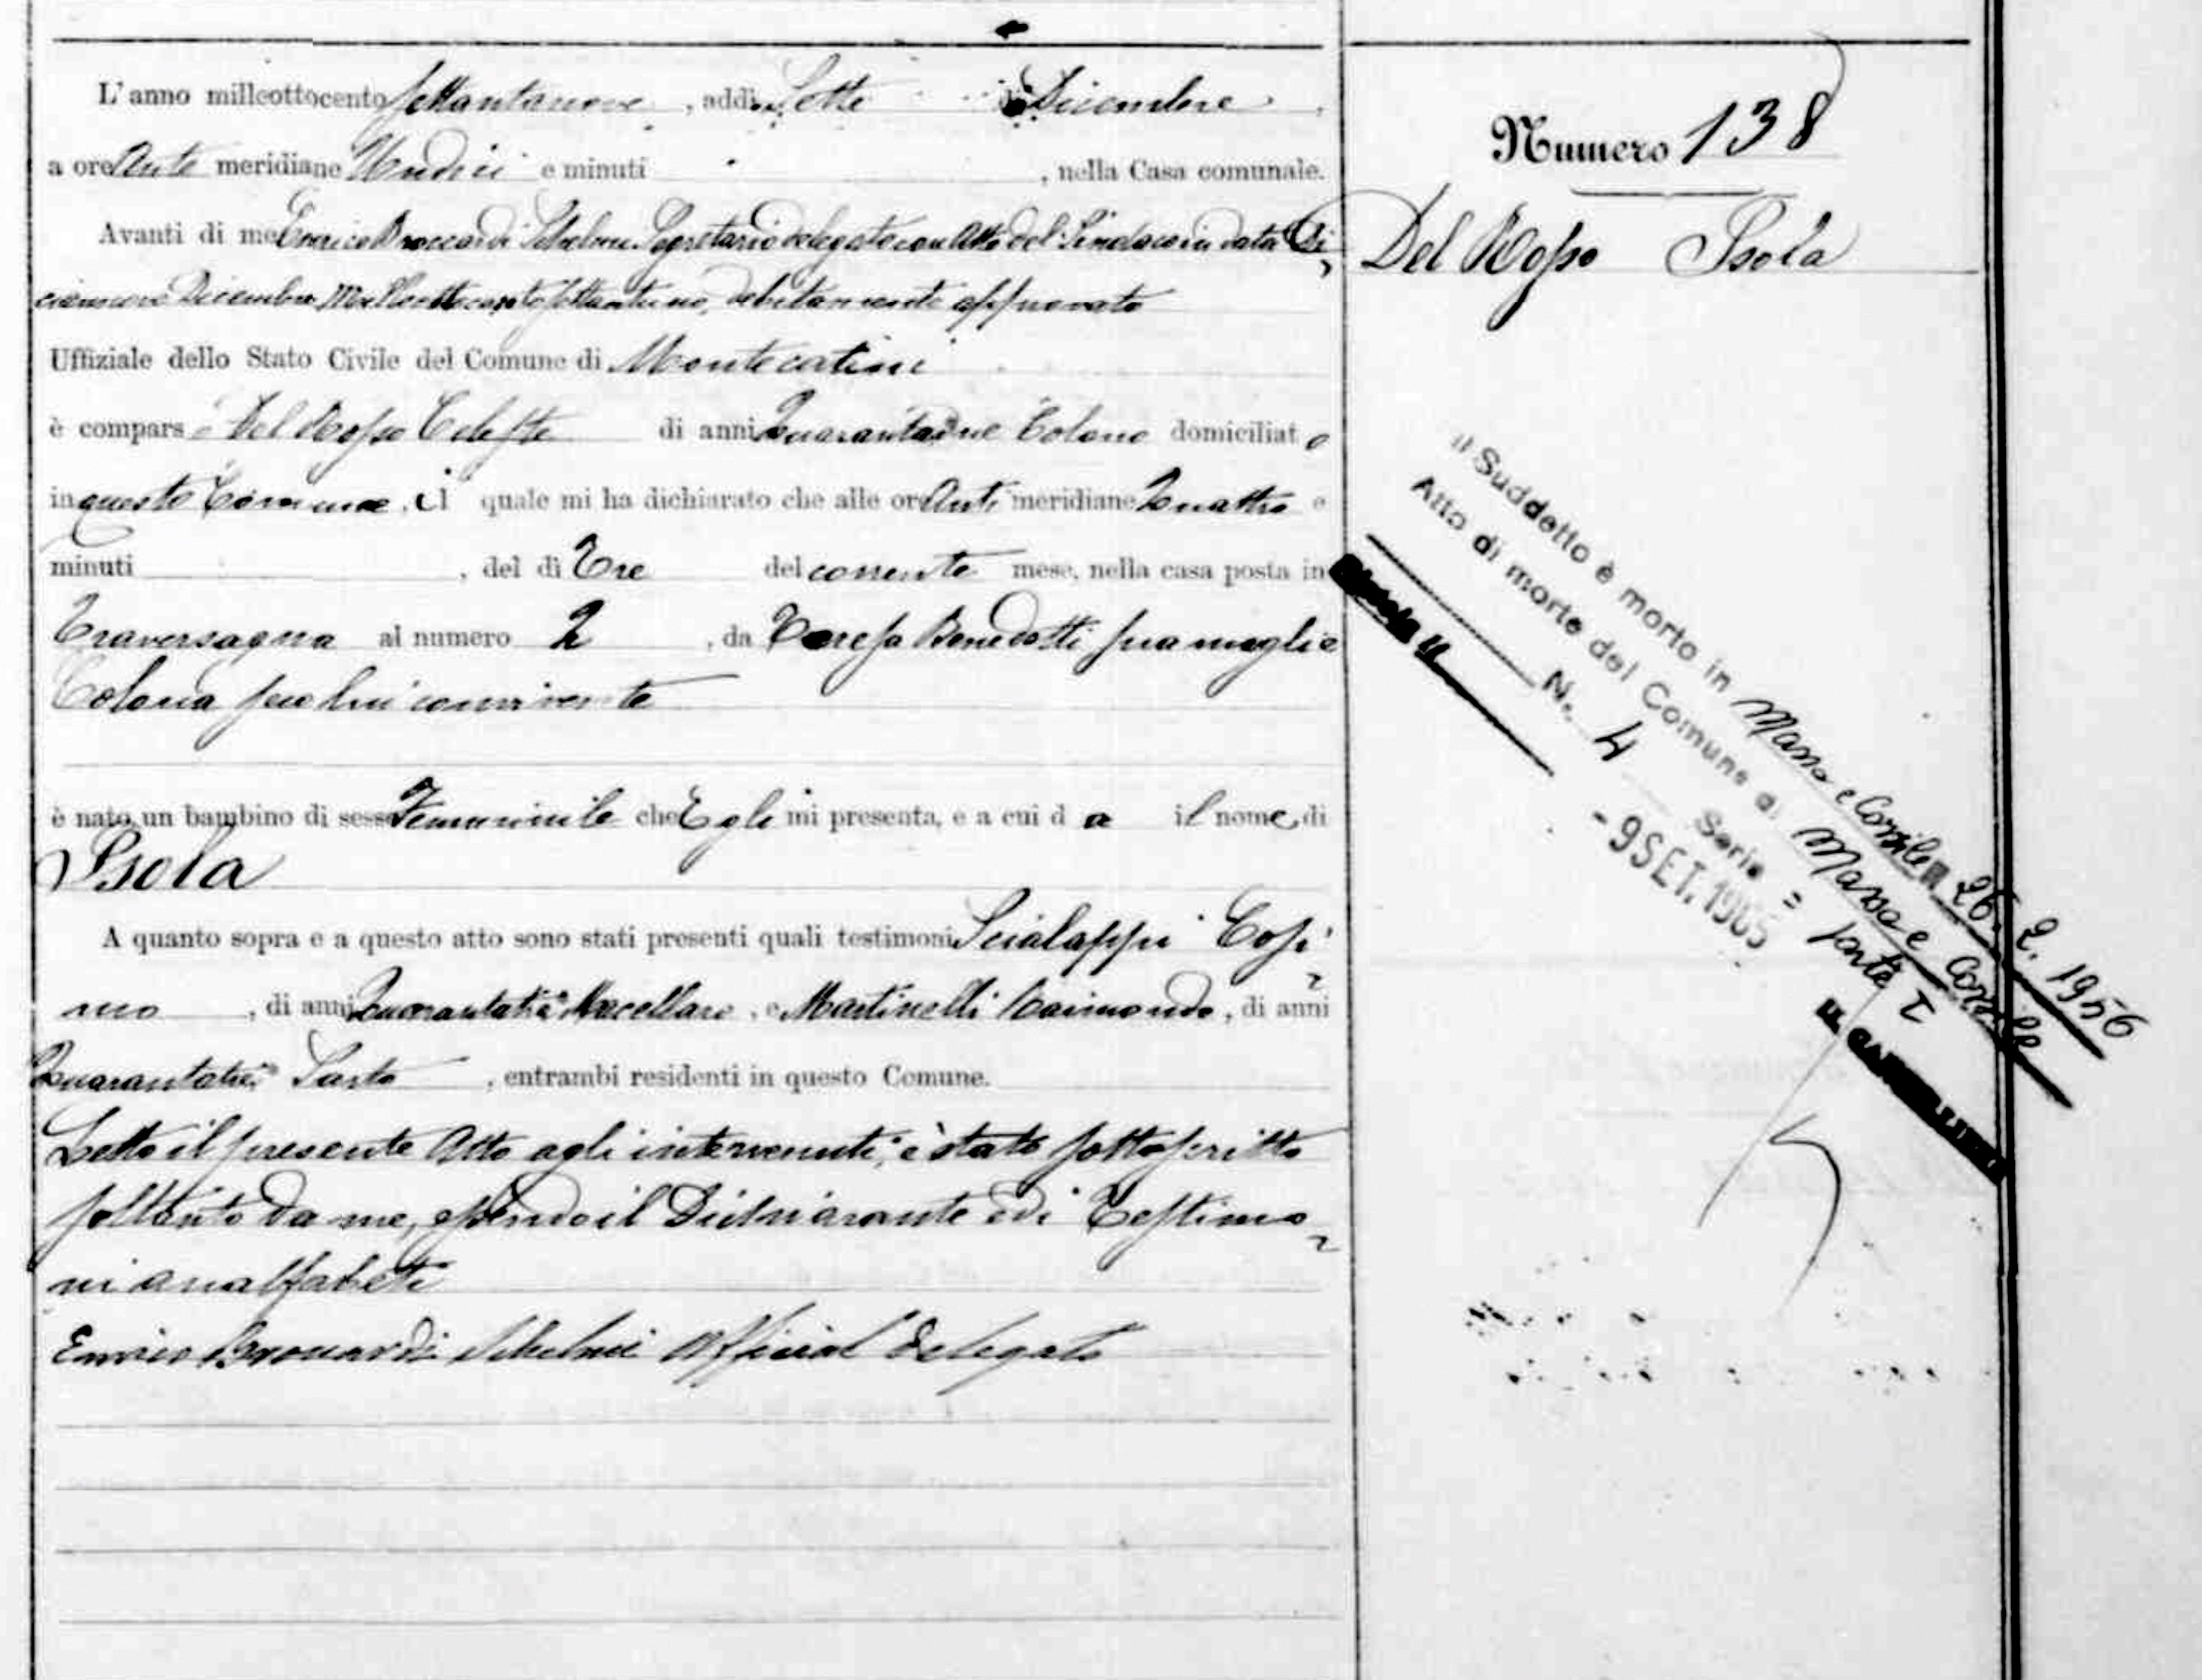 L'anno milleottocento settantanove, addì Sette Dicembre,
a ore Ante meridiane Undici e minuti , nella Casa comunale.
Avanti di me Enrico Broccardi Schelmi Segretario delegato con Atto del Sindaco in data Di
cianove Dicembre Milleottocentosettantuno, debitamente approvato
Uffiziale dello Stato Civile del Comune di Montecatini
è comparso Del Rosso Celeste di anni Quarantadue Colono domiciliato
in questo Comune, il quale mi ha dichiarato che alle ore Anti meridiane Quattro e
minuti , del dì Tre del corrente mese, nella casa posta in
Traversagna al numero 2 , da Teresa Benedetti sua moglie
Colona seco lui convivente
è nato un bambino di sesso Femminile che Egli mi presenta, e a cui da il nome di
Isola
A quanto sopra e a questo atto sono stati presenti quali testimoni Scialappi Cosi
mo , di anni Quarantatre Macellaro, e Martinelli Raimondo, di anni
Quarantatre Sarto , entrambi residenti in questo Comune.
Letto il presente Atto agli intervenuti, è stato sottoscritto
soltanto da me, essendo il Dichiarante ed i Testimo
ni analfabeti
Enrico Broccardi Schelmi Official delegato
Numero 138
Del Rosso Isola
Il Suddetto è morto in Massa e Cozzile 26. 2. 1956
Atto di morte del Comune di Massa e Cozzile
N. 4 Serie = parte I
- 9 SET. 1965